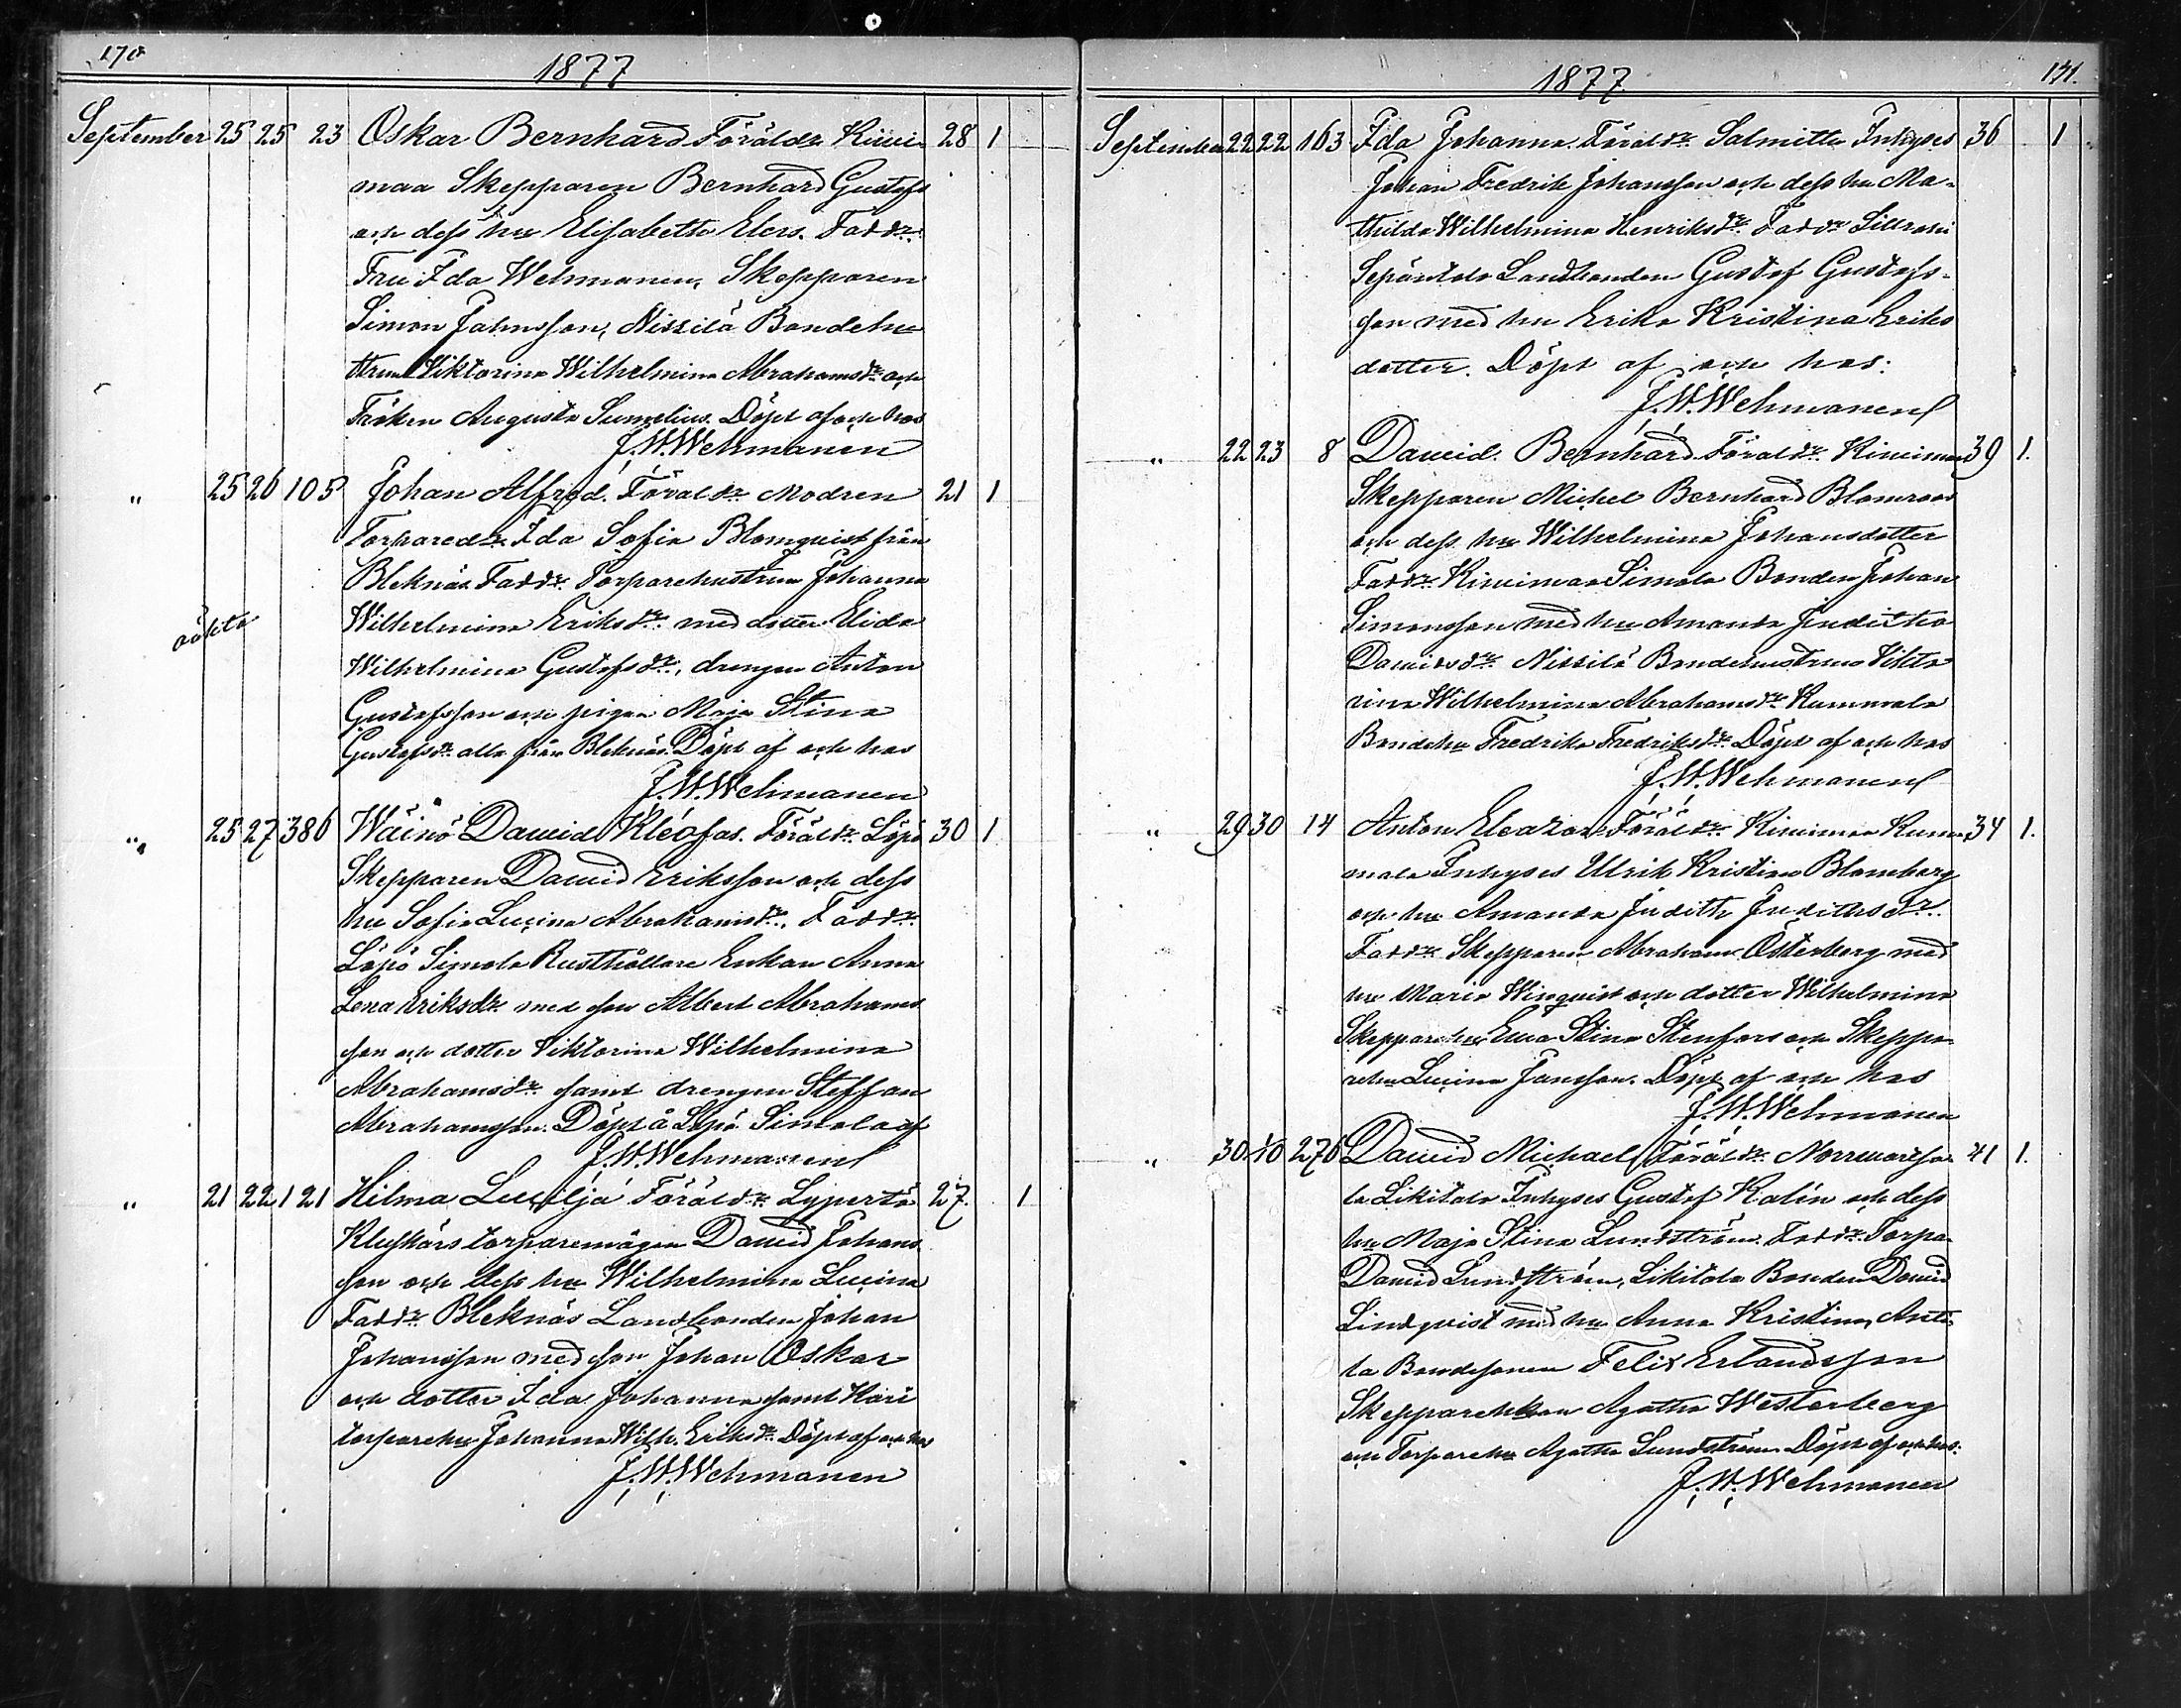 170
1877
September 25 25 23 Oskar Bernhard. Föräldr. Kiwi- 28 1
maa Skepparen Bernhard Gustafs
och dess hu Elisabetha Elers. Faddr.
Fru Ida Wehmanen, Skepparen
Simon Jahnsson, Nissilä Bondehu
strun Viktorina Wilhelmina Abrahamsdr och
Fröken Augusta Sumelius. Döpt af och hos
J.W.Wehmanen
" 25 26 105 Johan Alfred. Föräldr Modren 21 1
Torparedr. Ida Sofia Blomquist från
Bleknäs. Faddr. Torparehustrun Johanna
oäkta
Wilhelmina Eriksdr. med dotter Elida
Wilhelmina Gustafsdr., drengen Anton
Gustafsson och pigan Maja Stina
Gustafsdr alla från Bleknäs. Döpt af och hos
J.W.Wehmanen
" 25 27 386 Wäinö Dawid Kléofas. Föräldr. Löpö 30 1
Skepparen Dawid Eriksson och dess
hu Sofia Lucina Abrahamsdr. Faddr.
Löpö Simola Rusthållare Enkan Anna
Lena Eriksdr. med son Albert Abrahams
son och dotter Viktorina Wilhelmina
Abrahamsdr. samt drengen Steffan
Abrahamsson. Döpt å Löpö Simola af
J.W.Wehmanen
" 21 22 121 Hilma Lucilja Föräldr. Lypertö 27. 1
Kluskärs torparemågen Dawid Johans
son och dess hu Wilhelmina Lucina
Faddr. Bleknäs Landbonden Johan
Johansson med son Johan Oskar
och dotter Ida Johanna samt Kari
torparehu Johanna Wilh. Eriksdr. Döpt af och hos
J.W.Wehmanen
171.
1877
September 22 22 163 Ida Johanna. Föräldr. Salmitta Inhyses 36 1
Johan Fredrik Johansson och dess hu Ma-
thilda Wilhelmina Henriksdr. Faddr
Landbonden Gustaf Gustafs-
son med hu Erika Kristina Eriks
dotter. Döpt af och hos:
J.W.Wehmanen
" 22 23 8 Dawid Bernhard. Föräldr. Kiwimaa 39 1.
Skepparen Michel Bernhard Blomroos
och dess hu Wilhelmina Johansdotter
Faddr. Kiwimaa Simola Bonden Johan
Simonsson med hu Amanda Juditha
Dawidsdr. Nissilä Bondehustrun Vikto
rina Wilhelmina Abrahamsdr. Kummala
Bondehu Fredrika Fredriksdr. Döpt af och hos
J.W.Wehmanen
" 29 30 14 Anton Eleazar. Föräldr. Kiwimaa Kum- 34 1.
mala Inhyses Ulrik Kristian Blomberg
och hu Amanda Judith Judithsdr.
Faddr. Skepparen Abraham Österberg med
hu Maria Winquist och dotter Wilhelmina
Skepparehu Ewa Stina Stenfors och Skeppa-
rehu Lucina Jansson. Döpt af och hos
J.W.Wehmanen
" 30 10 276 Dawid Michael. Föräldr. 41 1.
la Likitalo Inhyses Gustaf Kalín och dess
hu Maja Stina Lundström. Faddr. Torpa-
Dawid Lundström, Likitalo Bonden Dawid
Lindqvist med hu Anna Kristina, Antt
la Bondesonen Felix Erlandsson
Skepparenkan Agatha Westerberg
och Torparehu Agatha Lundström. Döpt af och hos:
J.W.Wehmanen